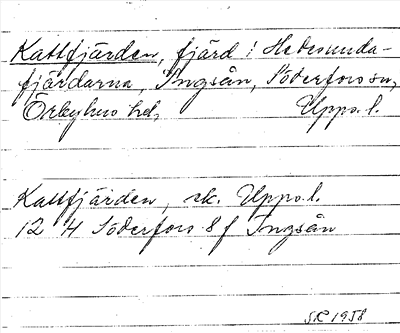 Kattfjärden, fjärd i Hedesunda-
fjärdarna, Tngsån, Söderfors sn,
Örbyhus hd, Upps. l.
Kattfjärden, sk. Upps. l.
12 4 Söderfors 8 f Tngsån
S.C 1958